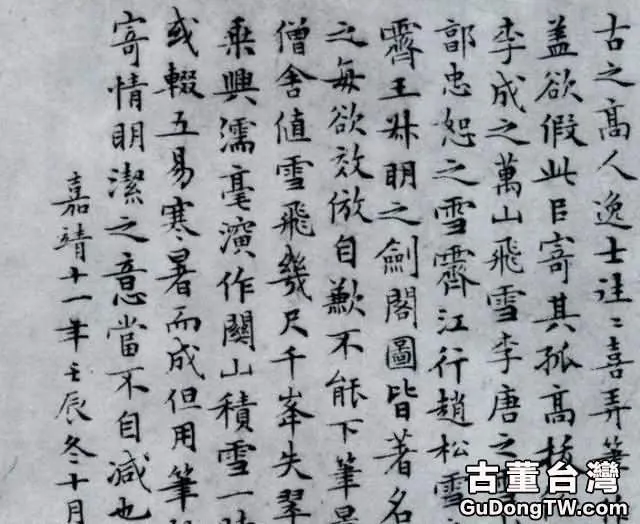 古之高人逸士往〻喜弄筆
盖欲假此㠯寄其孤高拔
李成之萬山飛雪李唐之
郭忠恕之雪霽江行趙松雪
霽王叔明之劍閣圖皆著名
之每欲效倣自歉不能下筆
僧舍值雪飛幾尺千峯失翠
乘興濡毫演作關山積雪一
或輟五易寒暑而成但用筆
寄情明潔之意當不自減也
嘉靖十一年壬辰冬十月
古董台灣
GuDongTw.com